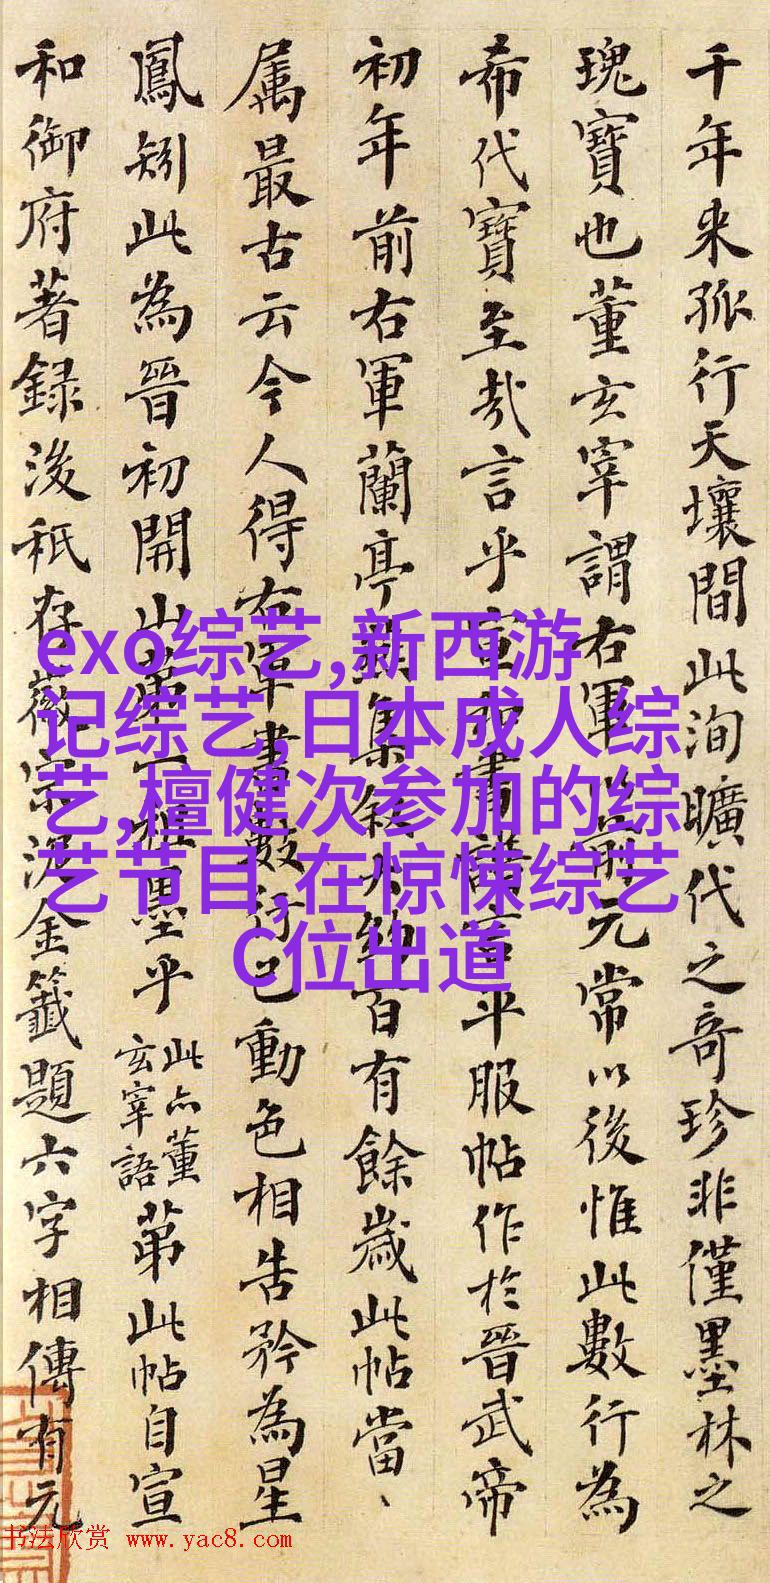 千年来孤行天壤間此洵曠代之奇珍非僅墨林之
瑰寶也董玄宰謂右軍以前元常以後惟此數行為
希代寶至哉言乎宣和書譜言平服帖作於晉武帝
初年前右軍蘭亭讌集敘大約百有餘歲此帖當、
属最古云今人得右軍書數行已動色相告矜為星
鳳矧此為晉初開山第一祖墨乎
此亦董
玄宰語
苐此帖自宣
和御府著録後秪存徽宗泥金籤題六字相傳有元
exo综艺,新西游
记综艺,日本成人综
艺,檀健次参加的综
艺节目,在惊悚综艺
C位出道
书法欣赏 www.yac8.com